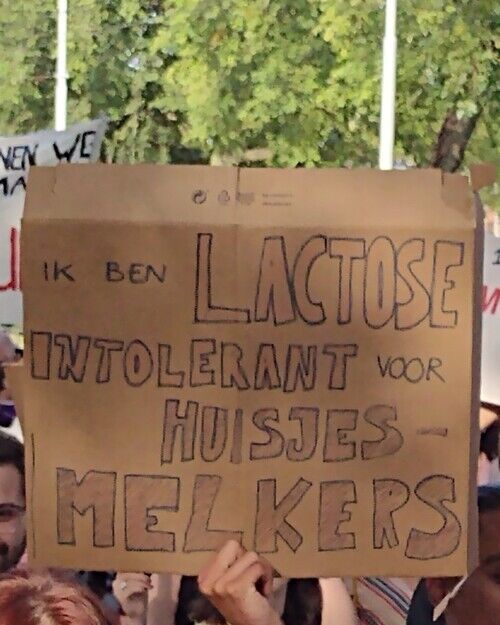 NEN WE
MA
IK BEN LACTOSE
INTOLERANT VOOR
HUISJES-
MELKERS